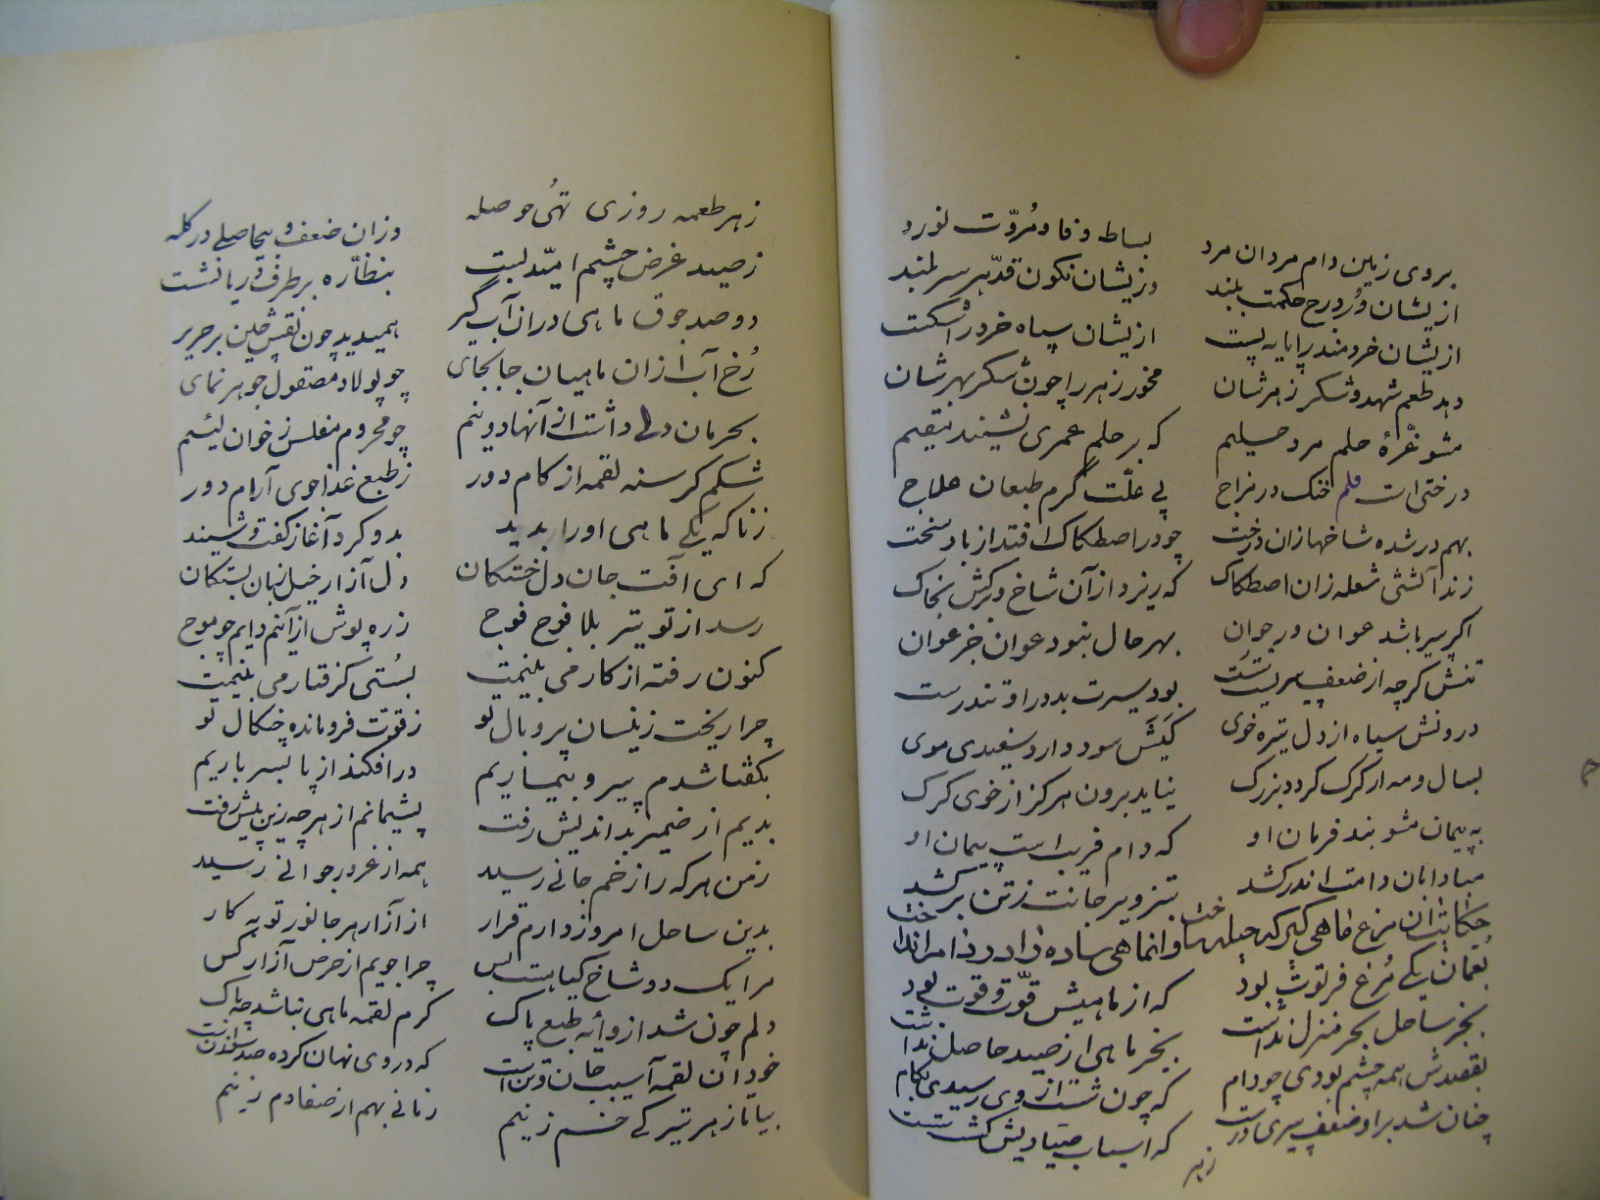 بروی زمین دام مردان مرد بساط وفا و مروّت نورد
ازیشان حکمت بلند وزیشان نگون قدّ هر سربلند
ازیشان خردمند را پایه پست ازیشان سپاه خرد را شکست
دهد طعم شهد و شکر زهرشان مخور زهر را چون شکر بهرشان
مشو غرّهٔ حلم مرد حلیم که بر حلم عمری نشیند مقیم
درختی است خنک در مزاج پی علّت گرم طبعان علاج
بهم در شده شاخها زان درخت چو در اصطکاک افتد از باد سخت
زند آتشی شعله زان اصطکاک که ریزد از آن شاخ و برگش بخاک
اگر پیر باشد عوان ور جوان بهر حال نبود عوان جز عوان
تنش گرچه از ضعف پیریست سست بود سیرت بد در او تندرست
درونش سیاه از دل تیره خوی کیش سود دارد سفیدی موی
بسال و مه ار گرگ گردد بزرگ نیاید برون هرگز از خوی گرگ
به پیمان مشو بند فرمان او که دام فریب است پیمان او
مبادا بان دامت اندر کشد بتزویر جانت ز تن برکشد
حکایت آن مرغ ماهی گیر که حیله ساخت و آن ماهی ساده را در دام انداخت
بعمان یکی مرغ فرتوت بود که از ماهیش قوّت و قوت بود
بجز ساحل بحر منزل نداشت بجز ماهی از صید حاصل نداشت
بقصدش همه چشم بودی چو دام که چون شست از وی رسیدی بکام
چنان شد بر او ضعف پیری درست که اسباب صیادیش گشت سست
زهر
زهر طعمه روزی تهی حوصله وزان ضعف و بیحاصلی در گله
ز صید غرض چشم امیّد بست بنظّاره بر طرف دریا نشست
دو صد جوق ماهی در آن آب گیر همیدید چون نقش چین بر حریر
رخ آب از آن ماهیان جابجای چو پولاد مصقول جوهر نمای
بحرمان دلی داشت از آنها دو نیم چو محروم مفلس ز خوان لئیم
شکم گرسنه لقمه از کام دور ز طبع غذا جوی آرام دور
ز ناگه یکی ماهی او را بدید بدو کرد آغاز گفت و شنید
که ای آفت جان دل خستگان دل آزار خیل زبان بستگان
رسد از تو تیر بلا فوج فوج زره پوش از آنم دایم چو موج
کنون رفته از کار می بینمت بسستی گرفتار می بینمت
چرا ریخت زینسان پر و بال تو ز قوّت فرومانده چنگال تو
بگفتا شدم پیر و بیماریم در افکند از پا بسر باریم
بدیم از ضمیر بد اندیش رفت پشیمانم از هرچه زین پیش رفت
ز من هرکه را زخم جانی رسید همه از غرور جوانی رسید
بدین ساحل امروز دارم قرار از آزار هر جانور توبه کار
مرا یک دو شاخ گیا هست بس چرا جویم از حرص آزار کس
دلم چون شد از وایهٔ طبع پاک گرم لقمه ماهی نباشد چه باک
خود آن لقمه آسیب جان و تن است که در وی نهان کرده صد سوزنست
بیا تا ز هر تیرگی خم زنیم زمانی بهم از صفا دم زنیم